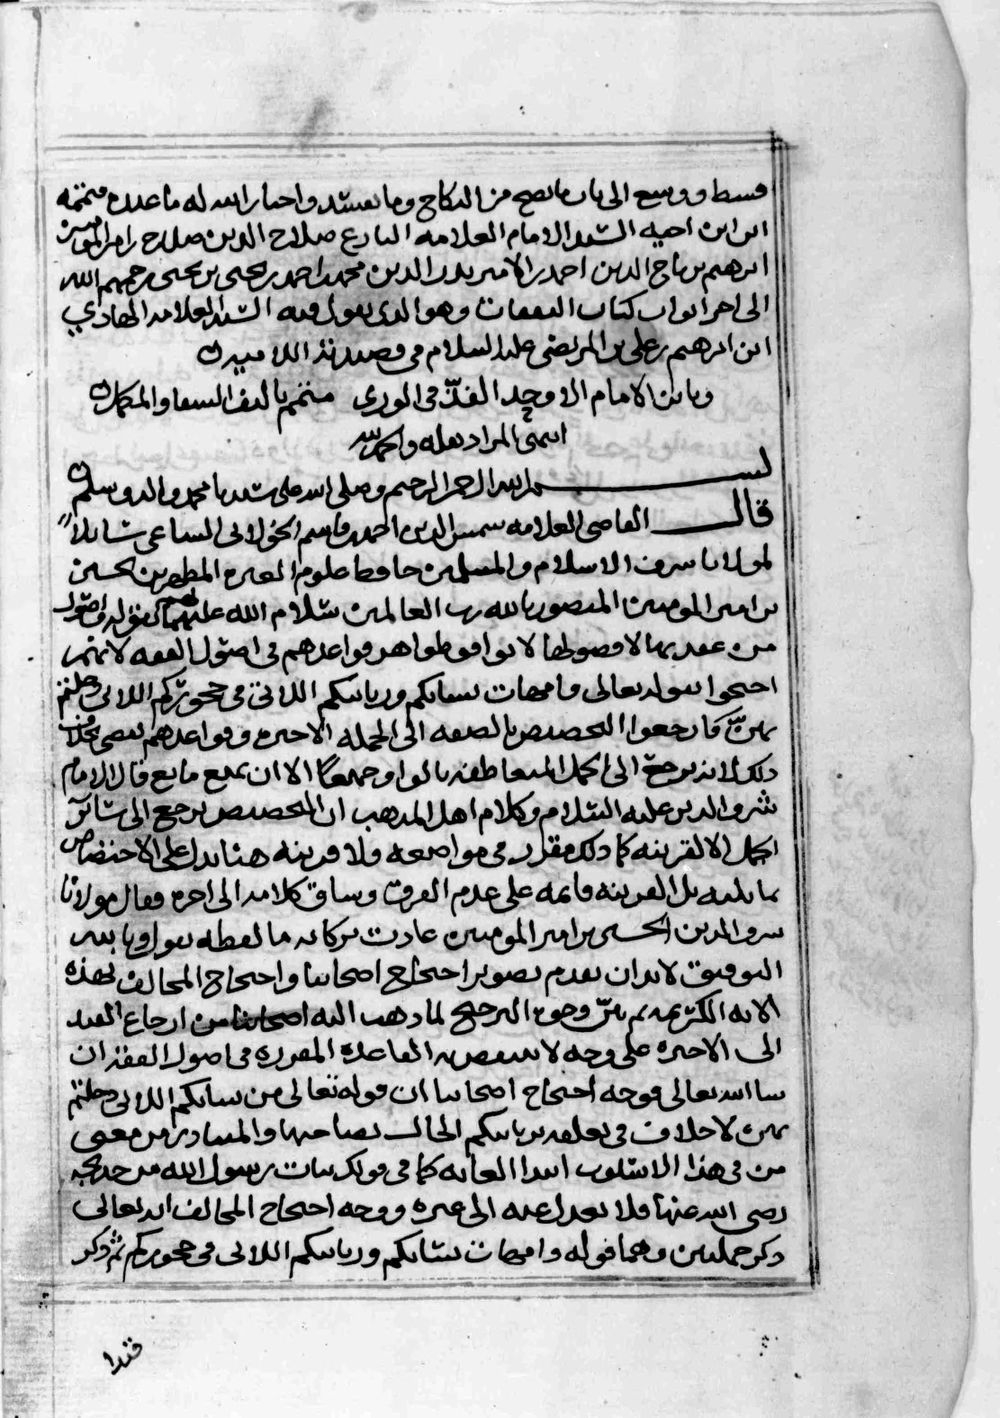 فبسط ووسع الى باب ما يصح من النكاح وما يفسد واختار الله له ما عنده فتممه
ابن ابن اخيه السيد الامام العلامه البارع صلاح الدين صلاح بن امير المومنين
ابرهيم بن تاج الدين احمد بن الامير بدر الدين محمد بن احمد بن يحيى بن يحيى رحمهم الله
الى اخر ابواب كتاب النفقات وهو الذي يقول فيه السيد العلامه الهادي
ابن ابرهيم بن علي بن المرتضى عليه السلام في قصيدته اللاميه
وبابن الامام الاوحد الفذ في الورى متمم تاليف الشفا والمكمل
انتهى المراد نقله والحمد لله
بسم الله الرحمن الرحيم وصلى الله على سيدنا محمد واله وسلم
قال القاضي العلامه شمس الدين احمد بن قاسم الخولاني الساعي سايلا
لمولانا شرف الاسلام والمسلمين حافظ علوم العتره المطهرين الحسين
بن امير المومنين المنصور بالله رب العالمين سلام الله عليهما
من عقد بها لا فصولها لا توافق ظواهر قواعدهم في اصول الفقه لانهم
احتجوا بقوله تعالى وامهات نسايكم وربايبكم اللاتي في حجوركم من نسايكم اللاتي دخلتم
بهن فارجعوا التخصيص بالصفه الى الجمله الاخيره وقواعدهم تقضي بخلاف
ذلك لانه يرجع الى الجمل المتعاطفه بالواو جميعا الا ان يمنع مانع قال الامام
شرف الدين عليه السلام وكلام اهل المذهب ان التخصيص يرجع الى سائر
الجمل الا لقرينه كما ذلك مقرر في مواضعه ولا قرينه هنا تدل على الاختصاص
بما يليه بل القرينه قائمه على عدم الفرق وساق كلامه الى اخره فقال مولانا
شرف الدين الحسين بن امير المومنين عادت بركاته ما لفظه نقول وبالله
التوفيق لا بد ان نقدم تصوير احتجاج اصحابنا واحتجاج المخالف بهذه
الايه الكريمه ثم نبين وجوه الترجيح لما ذهب اليه اصحابنا من ارجاع القيد
الى الاخيره على وجه لا تنتقض به القاعده المقرره في اصول الفقه ان
شا الله تعالى فوجه احتجاج اصحابنا ان قوله تعالى من نسايكم اللاتي دخلتم
بهن لا خلاف في تعلقه بربايبكم الحال بصاحبها والمتبادر من معنى
من في هذا الاسلوب ابتدا الغايه كما في قولك بنات رسول الله من خديجه
رضي الله عنها فلا يعدل عنه الى غيره ووجه احتجاج المخالف انه تعالى
ذكر جملتين وهما قوله وامهات نسايكم وربايبكم اللاتي في حجوركم ثم ذكر
قيدا